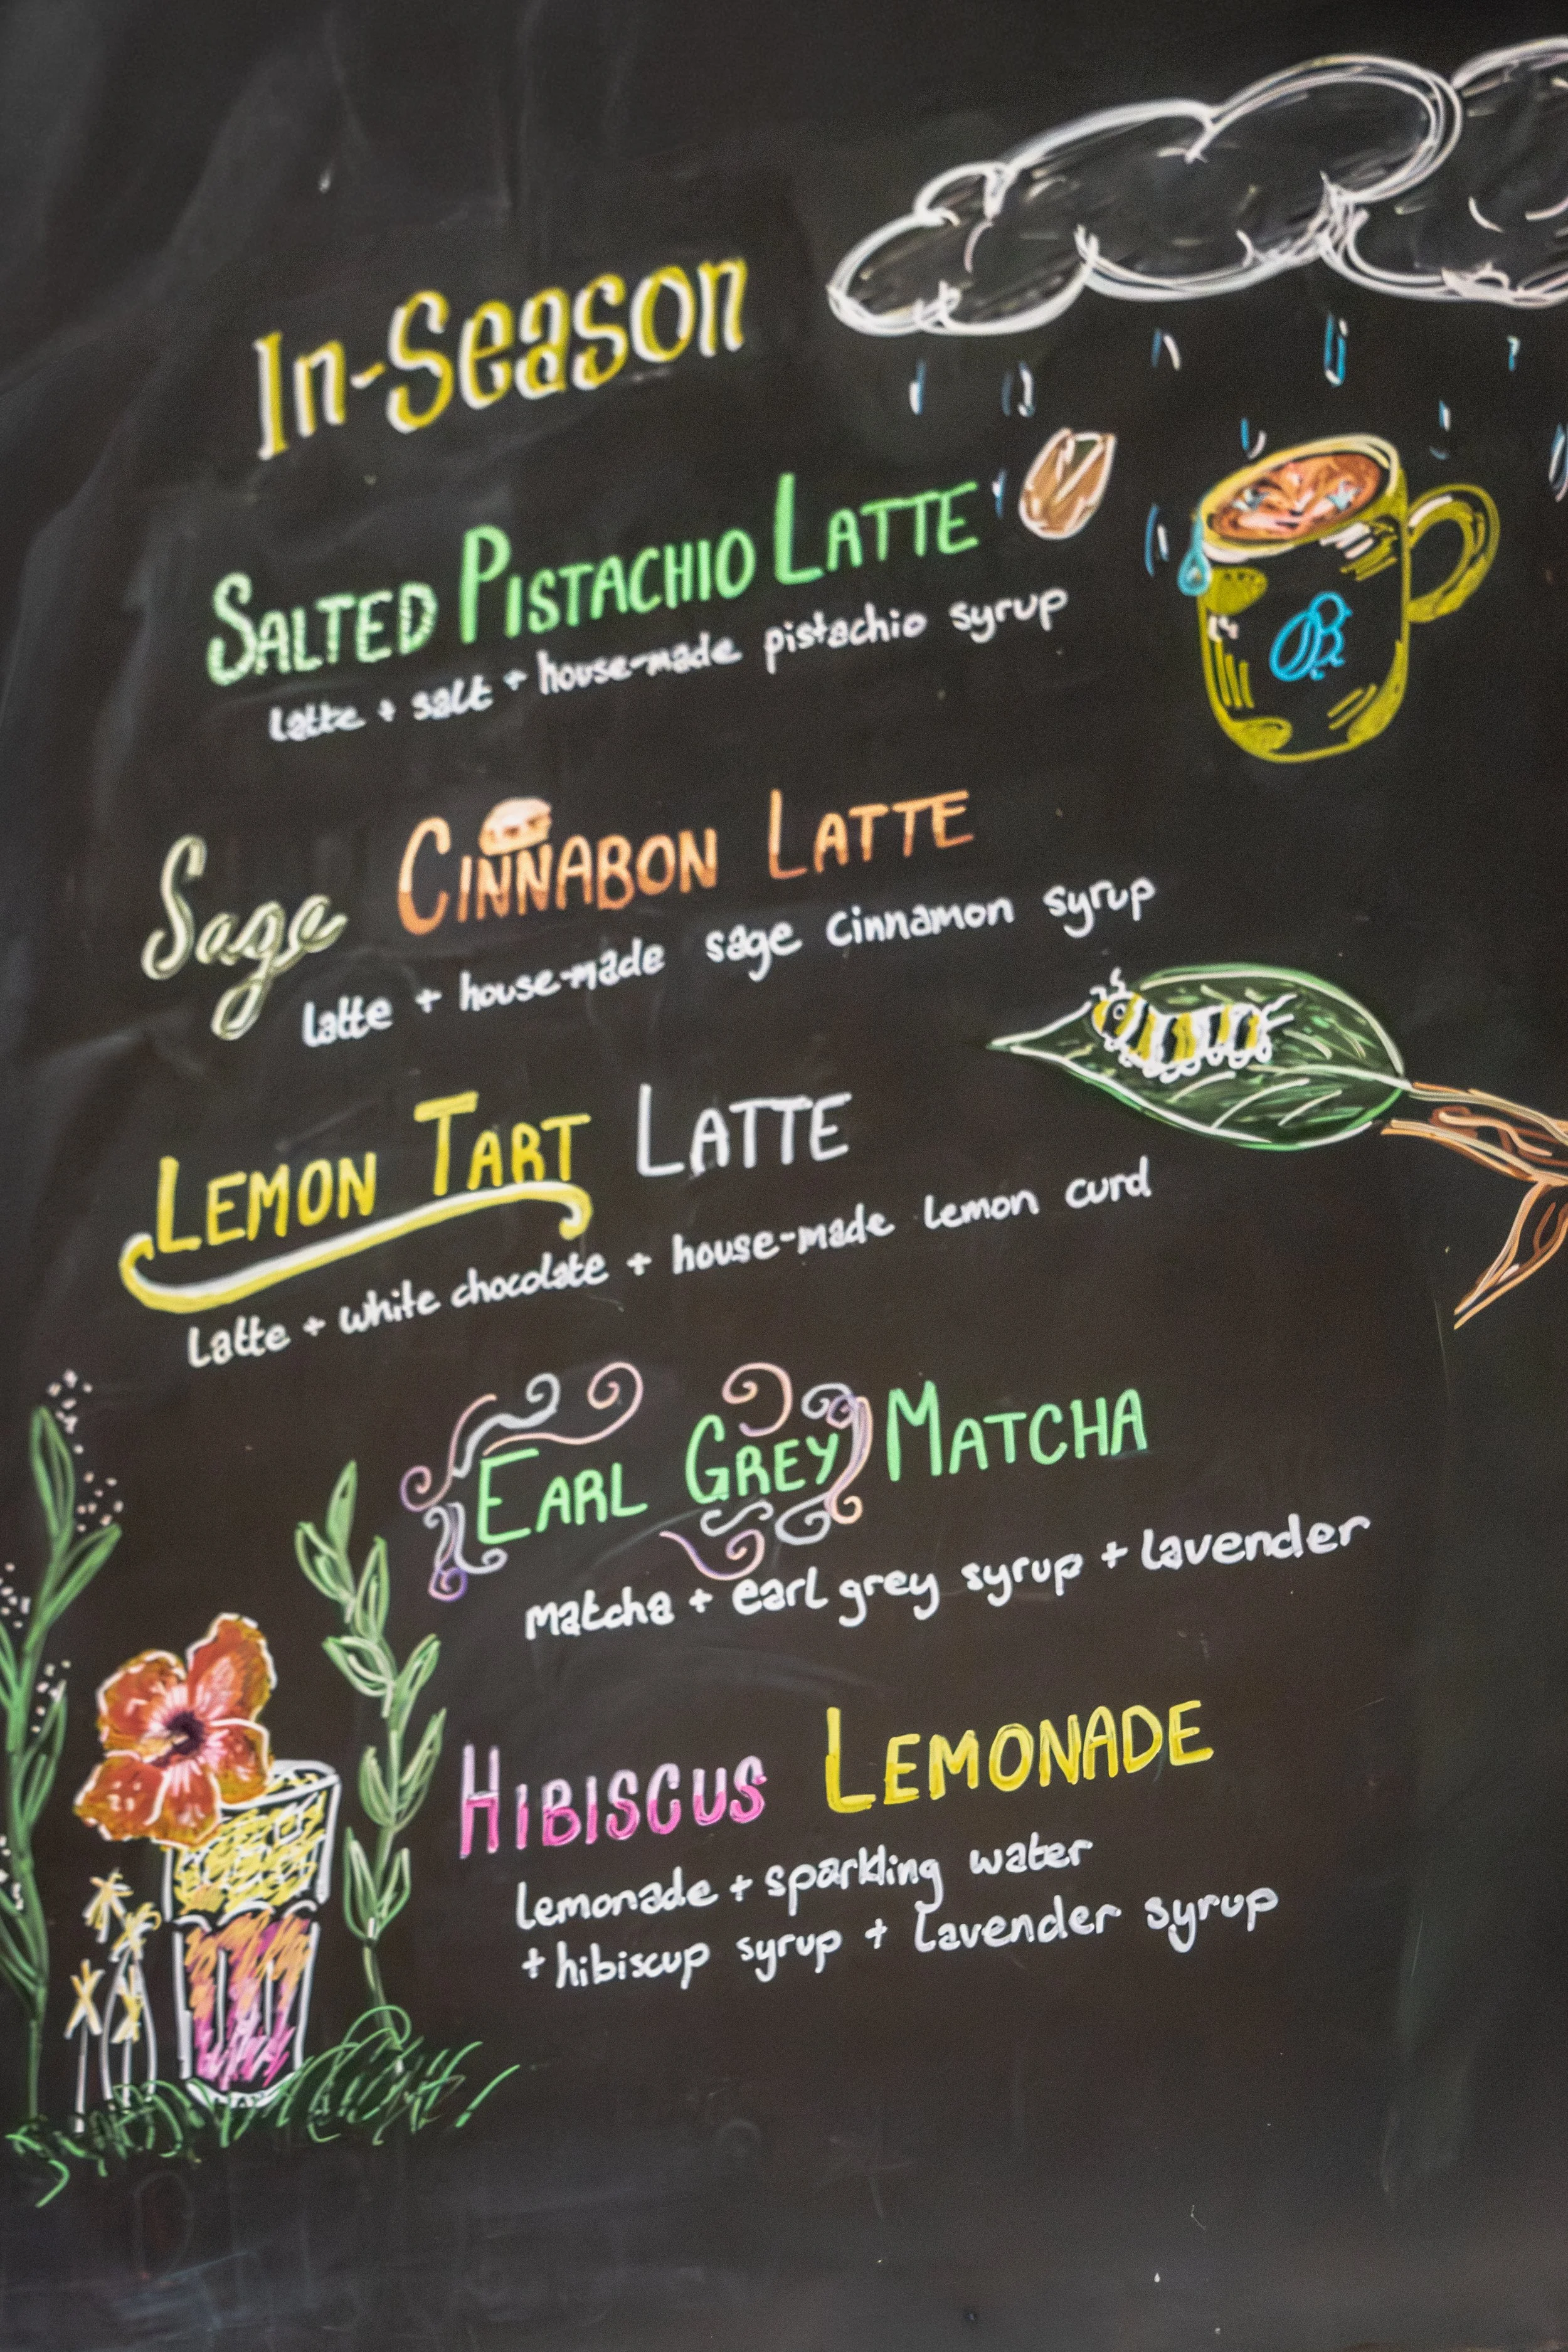 In-Season
SALTED PISTACHIO LATTE
latte + salt + house-made pistachio syrup
Sage CINNABON LATTE
latte + house-made sage cinnamon syrup
LEMON TART LATTE
Latte + white chocolate + house-made lemon curd
EARL GREY MATCHA
matcha + earl grey syrup + lavender
HIBISCUS LEMONADE
lemonade + sparkling water
+ hibiscup syrup + lavender syrup